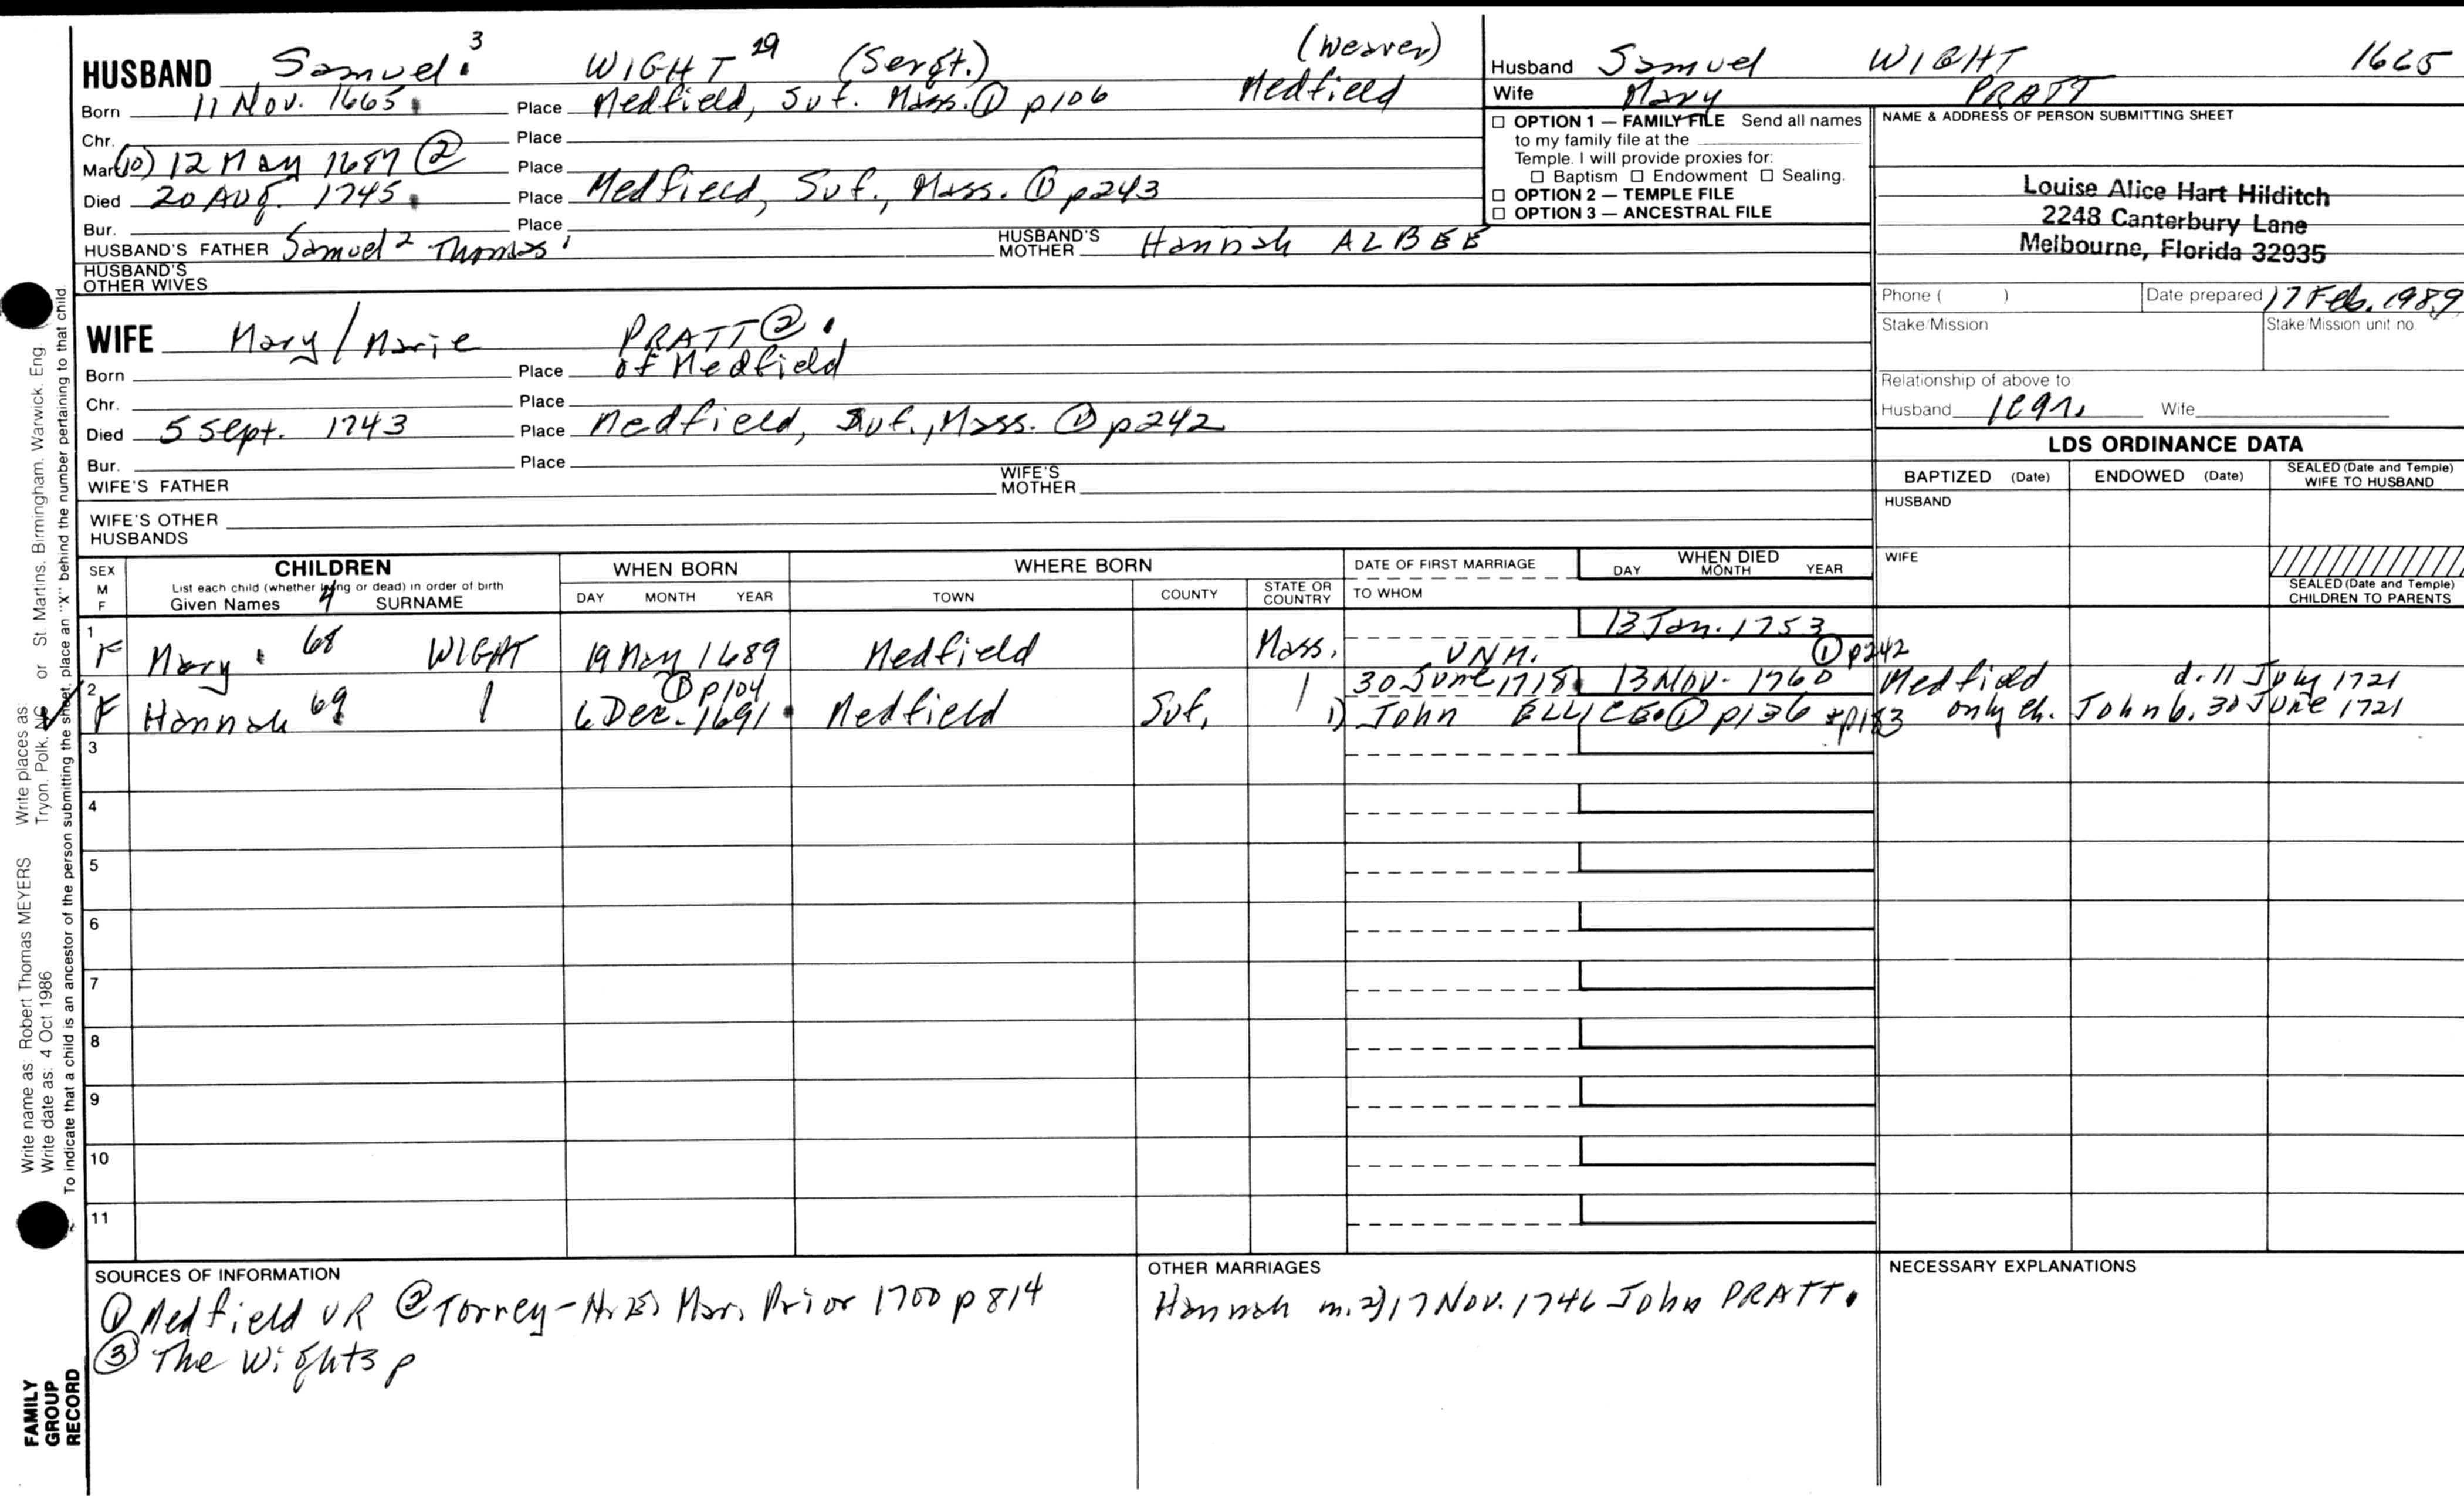 HUSBAND Samuel. 3 WIGHT 29 (Sergt.) (Weaver)
Born 11 Nov. 1665. Place Medfield, Suf. Mass. ① p106 Medfield
Chr. Place
Mar. (10) 12 May 1687 ② Place
Died 20 Aug. 1745. Place Medfield, Suf., Mass. ① p243
Bur. Place
HUSBAND'S FATHER Samuel 2 Thomas 1 HUSBAND'S MOTHER Hannah ALBEE
HUSBAND'S OTHER WIVES
WIFE Mary/Marie PRATT ② .
Born Place of Medfield
Chr. Place
Died 5 Sept. 1743 Place Medfield, Suf., Mass. ① p242
Bur. Place
WIFE'S FATHER WIFE'S MOTHER
WIFE'S OTHER HUSBANDS
Husband Samuel WIGHT 1665
Wife Mary PRATT
☐ OPTION 1 — FAMILY FILE Send all names
to my family file at the
Temple. I will provide proxies for:
☐ Baptism ☐ Endowment ☐ Sealing.
☐ OPTION 2 — TEMPLE FILE
☐ OPTION 3 — ANCESTRAL FILE
NAME & ADDRESS OF PERSON SUBMITTING SHEET
Louise Alice Hart Hilditch
2248 Canterbury Lane
Melbourne, Florida 32935
Phone ( ) Date prepared 17 Feb. 1989
Stake/Mission Stake/Mission unit no.
Relationship of above to:
Husband Wife
LDS ORDINANCE DATA
BAPTIZED (Date) ENDOWED (Date) SEALED (Date and Temple) WIFE TO HUSBAND
HUSBAND
WIFE
SEALED (Date and Temple) CHILDREN TO PARENTS
SEX M F CHILDREN WHEN BORN WHERE BORN DATE OF FIRST MARRIAGE WHEN DIED
List each child (whether living or dead) in order of birth
Given Names 4 SURNAME DAY MONTH YEAR TOWN COUNTY STATE OR COUNTRY TO WHOM DAY MONTH YEAR
13 Jan. 1753
1 F Mary . 68 WIGHT 19 May 1689 Medfield Mass. UNM. ① p242
① p104 30 June 1718. 13 Nov. 1760 Medfield d. 11 July 1721
2 F Hannah 69 6 Dec. 1691. Medfield Suf. 1) John ELLICE. ① p136 + p183 only ch. John b. 30 June 1721
3
4
5
6
7
8
9
10
11
SOURCES OF INFORMATION
① Medfield VR ② Torrey-N.E. Mar. Prior 1700 p814
③ The Wights p
OTHER MARRIAGES
Hannah m. 2) 17 Nov. 1746 John PRATT.
NECESSARY EXPLANATIONS
Write name as: Robert Thomas MEYERS Write places as: St. Martins, Birmingham, Warwick, Eng
Write date as: 4 Oct 1986 Tryon, Polk, NC or
To indicate that a child is an ancestor of the person submitting the sheet, place an "X" behind the number pertaining to that child.
FAMILY
GROUP
RECORD